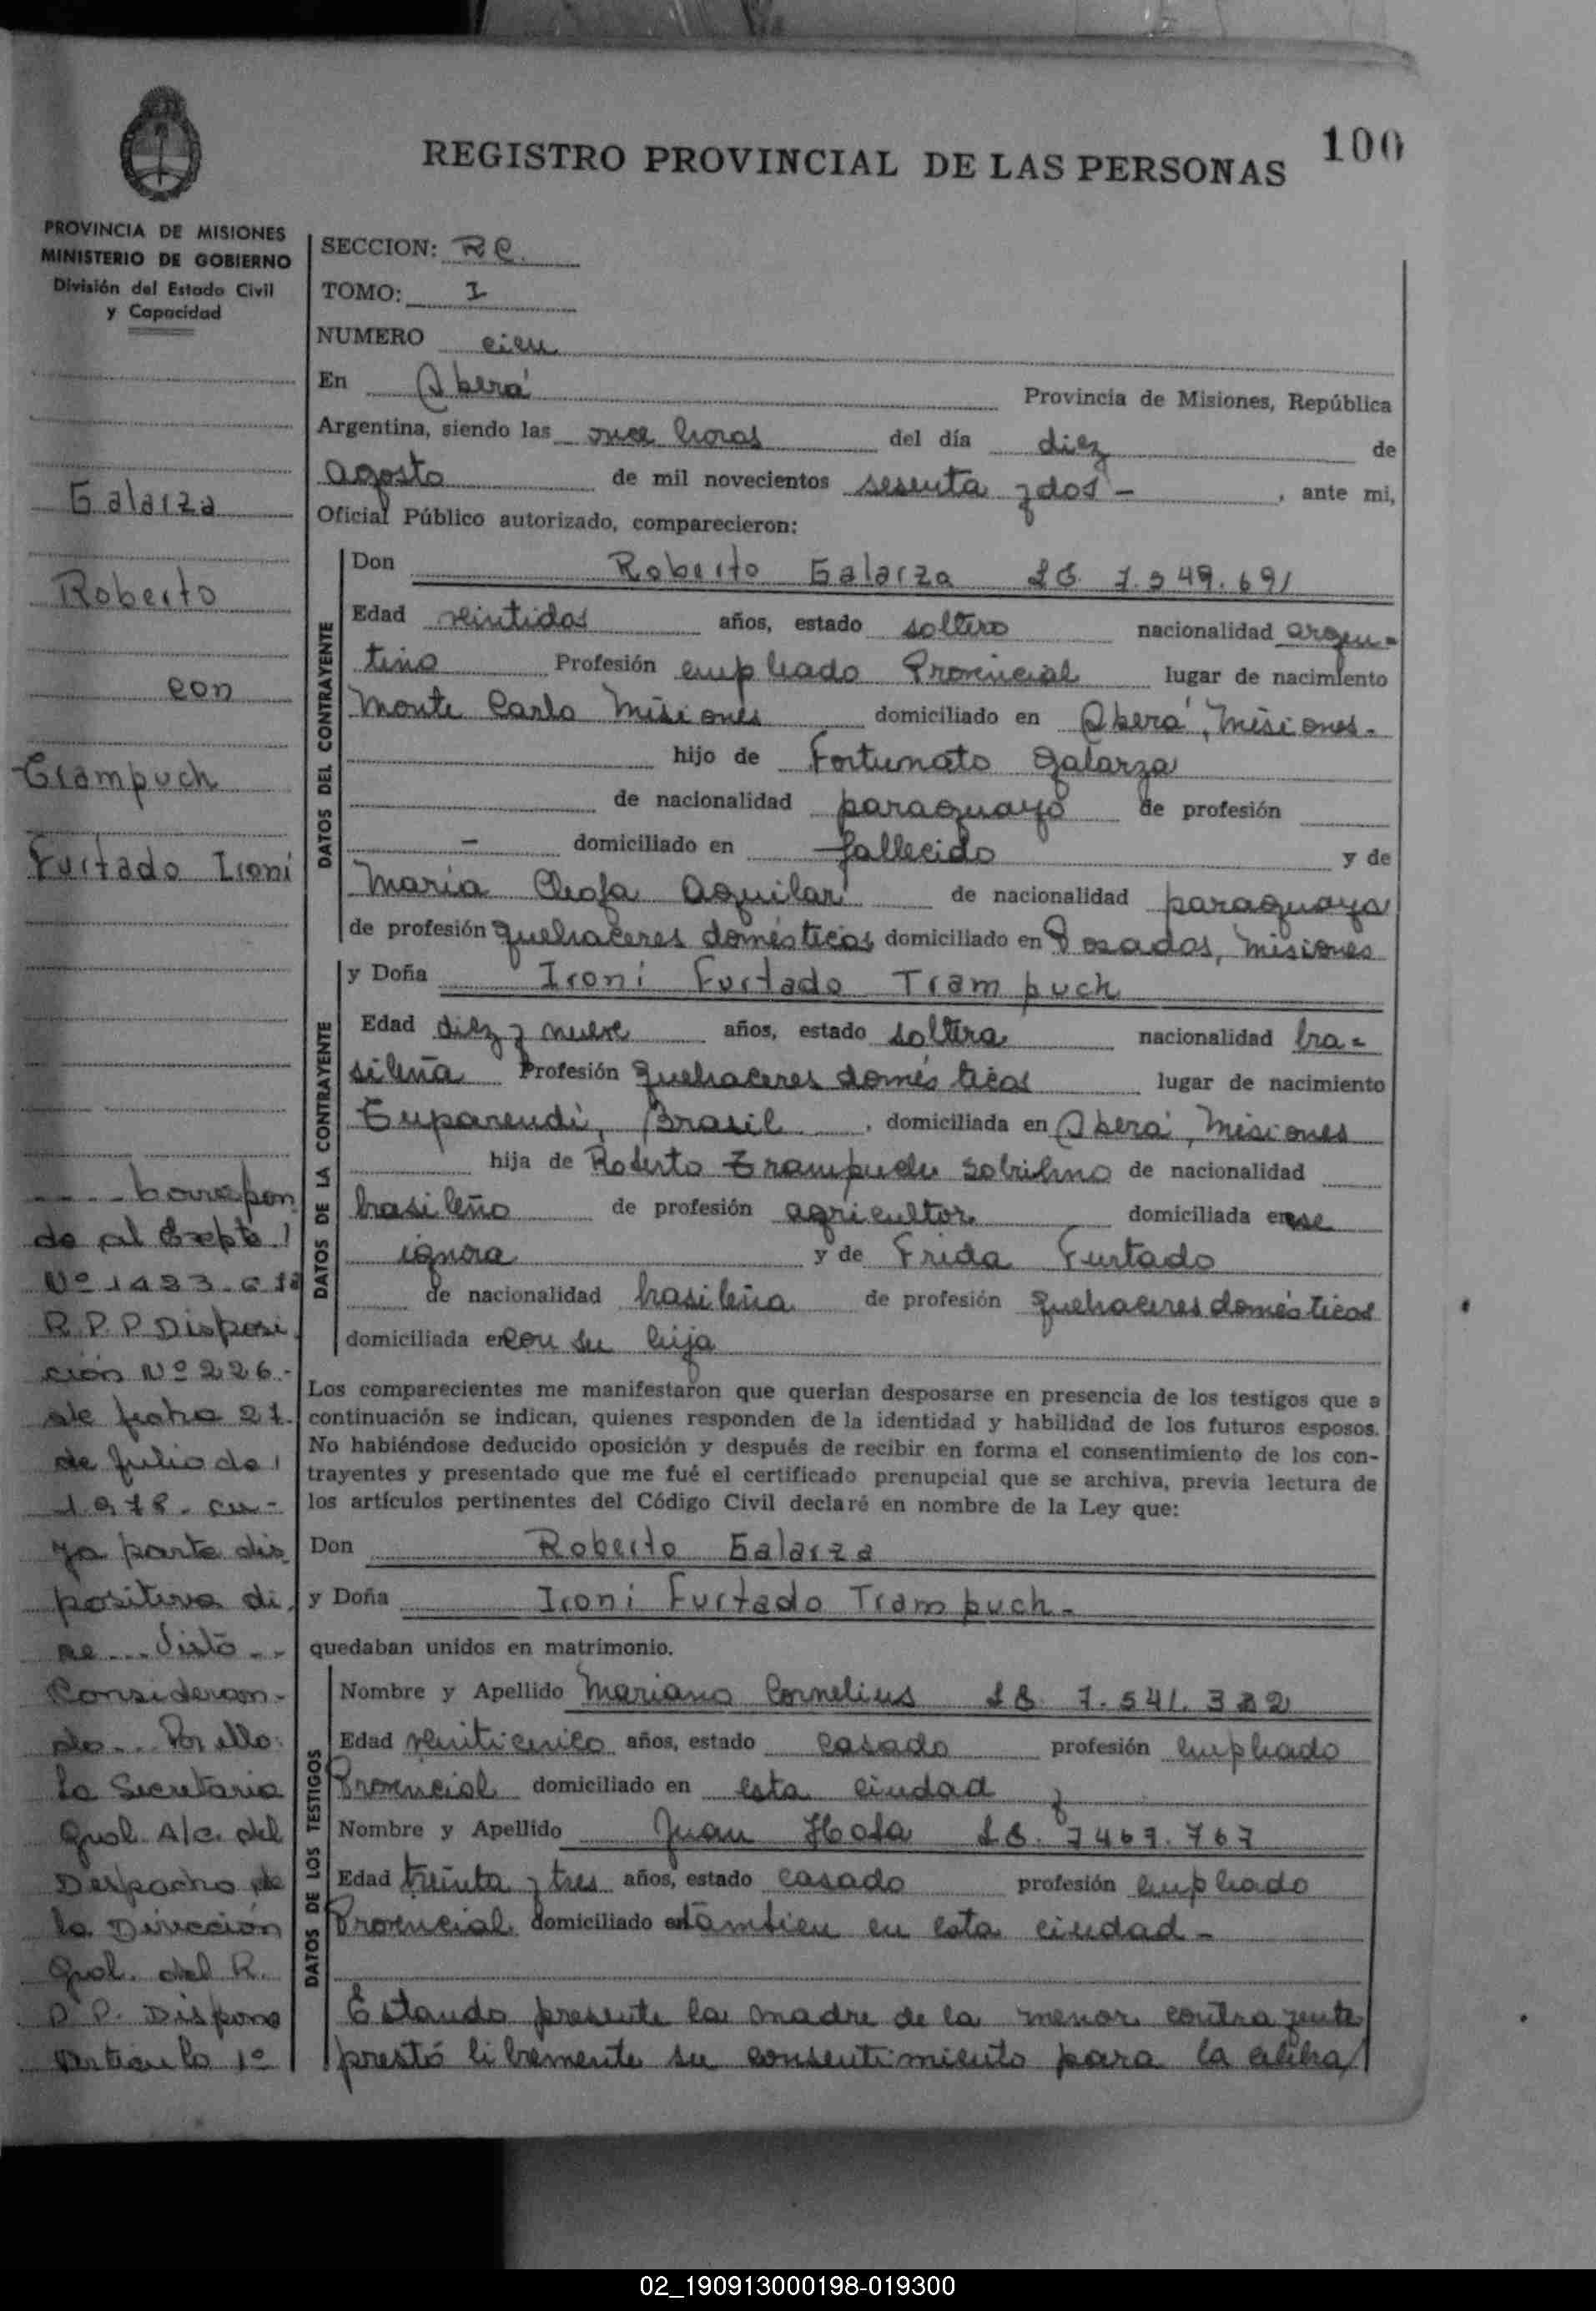 100
REGISTRO PROVINCIAL DE LAS PERSONAS
PROVINCIA DE MISIONES
MINISTERIO DE GOBIERNO
División del Estado Civil
y Capacidad
Galarza
Roberto
con
Trampuch
Furtado Ironi
SECCION: R C.
TOMO: I
NUMERO cien
En Oberá Provincia de Misiones, República
Argentina, siendo las once horas del día diez de
agosto de mil novecientos sesenta y dos - , ante mi,
Oficial Público autorizado, comparecieron:
DATOS DEL CONTRAYENTE
Don Roberto Galarza L E. 7.549.691
Edad veintidos años, estado soltero nacionalidad argen-
tino Profesión empleado Provincial lugar de nacimiento
Monte Carlo Misiones domiciliado en Oberá, Misiones.
hijo de Fortunato Galarza
de nacionalidad paraguayo de profesión
- domiciliado en fallecido y de
Maria Cleofa Aguilar de nacionalidad paraguaya
de profesión quehaceres domésticos domiciliado en Posadas, Misiones
DATOS DE LA CONTRAYENTE
y Doña Ironi Furtado Trampuch
Edad diez y nueve años, estado soltera nacionalidad bra-
sileña Profesión quehaceres domésticos lugar de nacimiento
Tuparendí, Brasil , domiciliada en Oberá, Misiones
hija de Roberto Trampuch Sobrihno de nacionalidad
brasileño de profesión agricultor domiciliada en se
ignora y de Frida Furtado
de nacionalidad brasileña de profesión quehaceres domésticos
domiciliada en con su hija
Los comparecientes me manifestaron que querían desposarse en presencia de los testigos que a
continuación se indican, quienes responden de la identidad y habilidad de los futuros esposos.
No habiéndose deducido oposición y después de recibir en forma el consentimiento de los con-
trayentes y presentado que me fué el certificado prenupcial que se archiva, previa lectura de
los artículos pertinentes del Código Civil declaré en nombre de la Ley que:
Don Roberto Galarza
y Doña Ironi Furtado Trampuch -
quedaban unidos en matrimonio.
DATOS DE LOS TESTIGOS
Nombre y Apellido Mariano Cornelius L E. 7.541.382
Edad veinticinco años, estado casado profesión empleado
Provincial domiciliado en esta ciudad y
Nombre y Apellido Juan L E. 7467.767
Edad treinta y tres años, estado casado profesión empleado
Provincial domiciliado en tambien en esta ciudad -
Estando presente la madre de la menor contrayente
prestó libremente su consentimiento para la
Correspon
de al Expte
Nº 1423
R.P.P Disposi
ción Nº 226.-
de fecha 21.
de Julio de
1978. cu-
ya parte dis
positiva di
ce... Visto..
Consideran-
do... Por ello:
La Secretaria
Gral. A/c. del
Despacho de
la Dirección
Gral. del R.
P P. Dispone
Articulo 1º
02_190913000198-019300